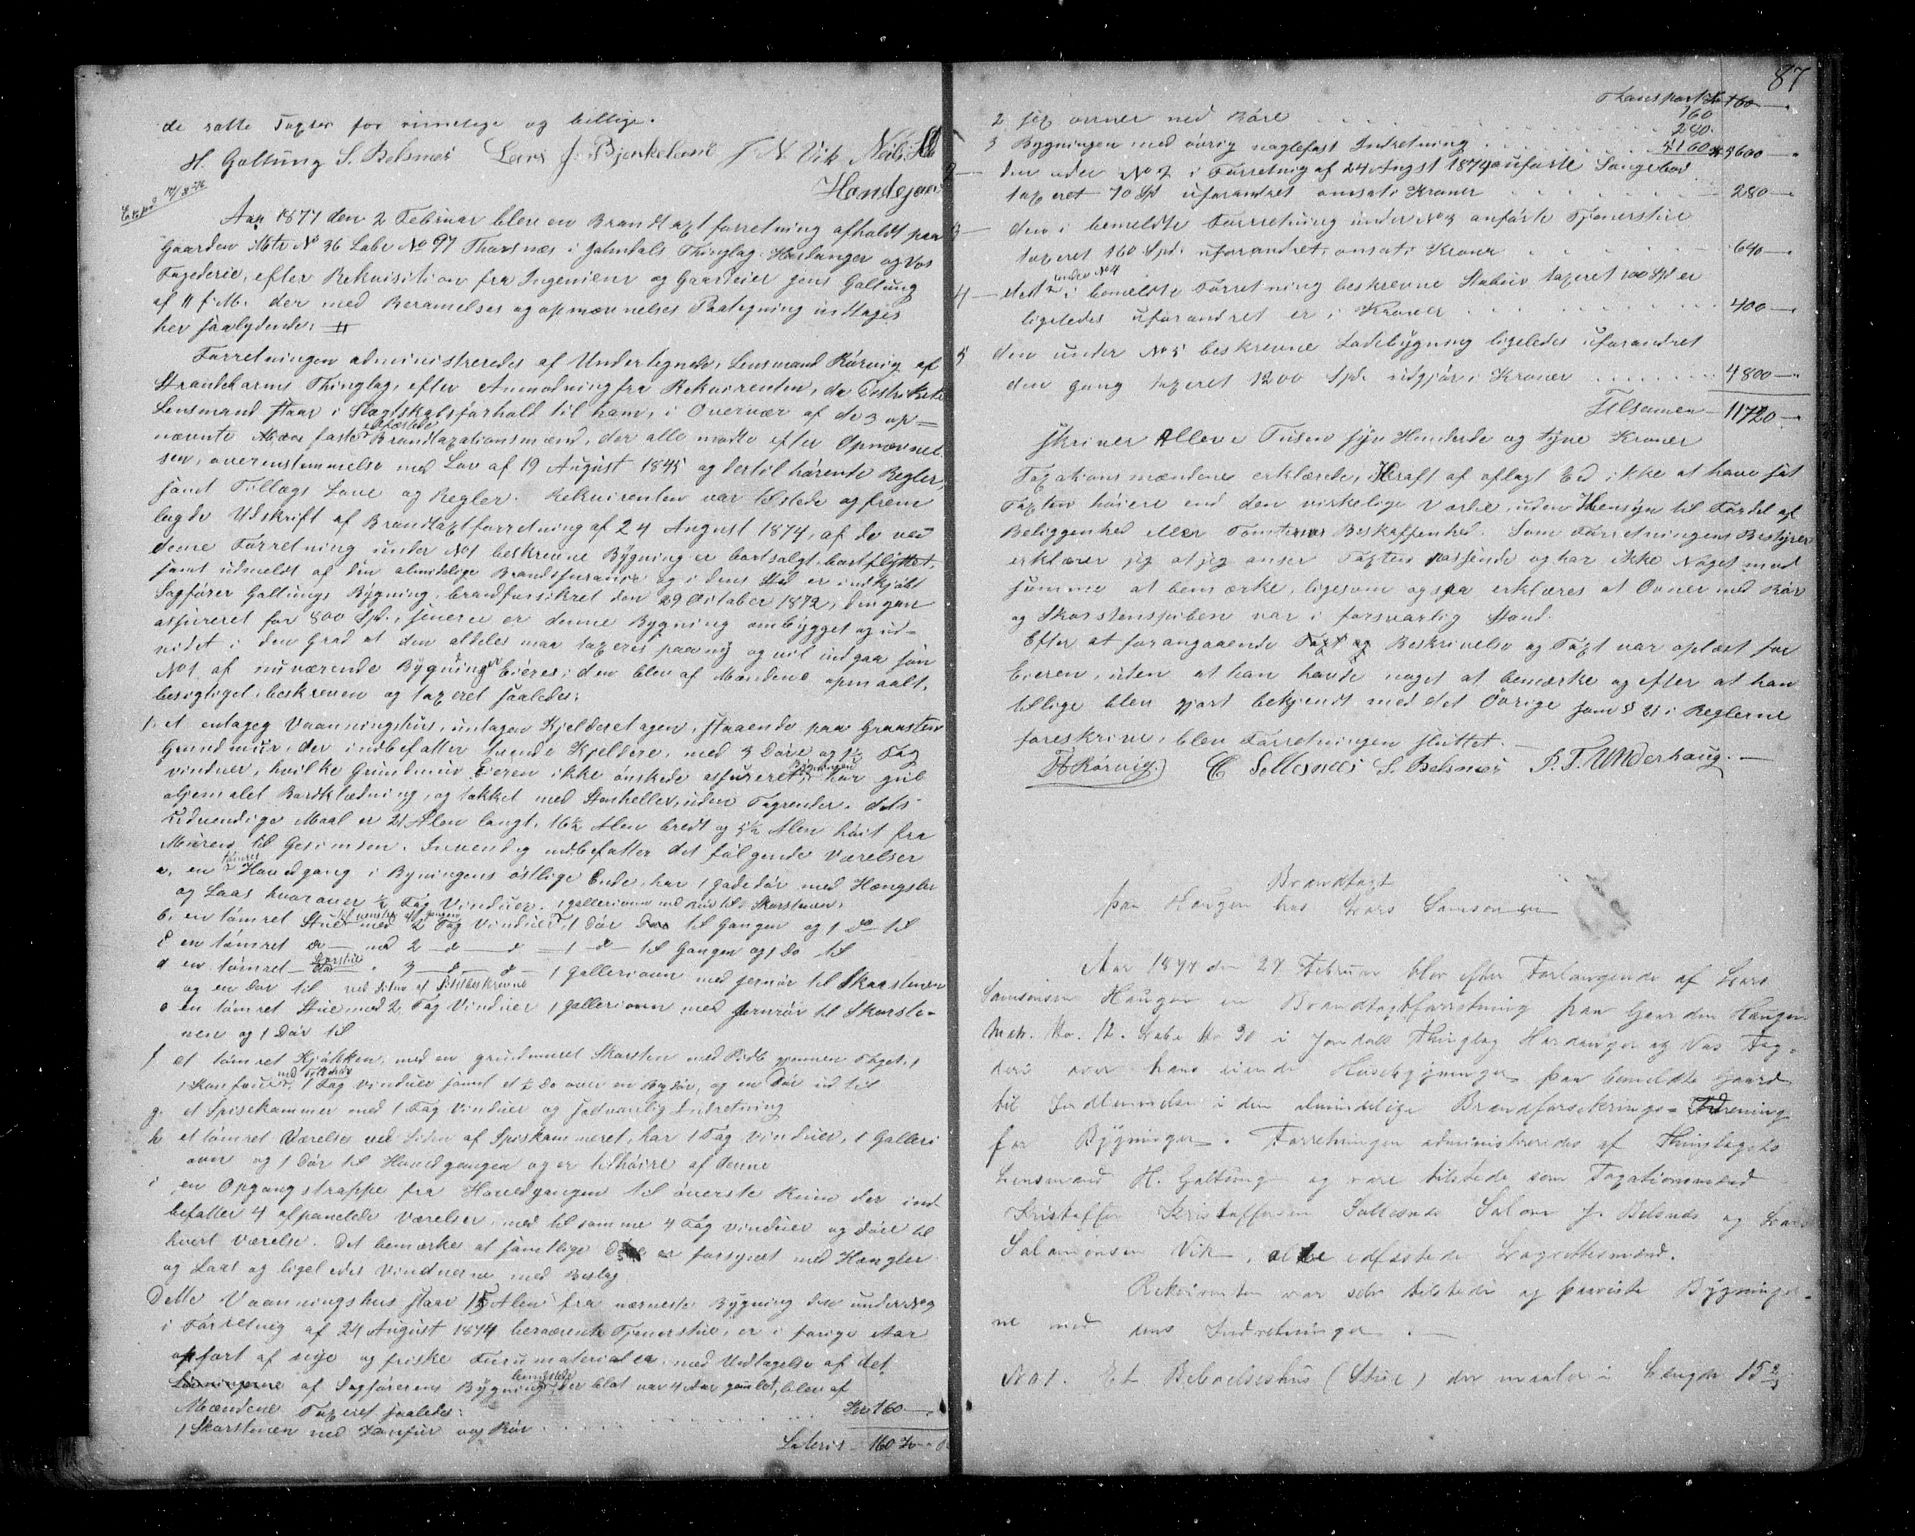 de satte Taxter for rimelige og billige.
H. Galtung S. Belsnæs Lars J. Bjørkehand N. Vik Neils
Hændejaer
Expd 14/8 76
Aar 1877 den 2 Februar blev en Brandtaxtforretning afholdt paa
Gaarden Mtr No 36 Løbe No 97 Thorsnæs i Jondals Thinglag Hardanger og Vos
Fogederie, efter Rekvisition fra Ingeniør og Gaardeier Jens Galtung
af 11 f. M. der med Berammelses og opnævnelses Paategning indtages
her saalydende: #
Forretningen administreredes af Undertegnede, Lensmand Rørvig af
Strandebarms Thinglag, efter Anmodning fra Rekvirenten, da Distriktets
Lensmand staar i Slægtskabsforhold til ham, i Overvær af de 3 op=
nævnte faste edfæstede Brandtaxationsmænd, der alle mødte efter Opnævnel
sen, overenstemmelse med Lov af 19 August 1845 og dertil hørende Regler
samt Tillægs Love og Regler. Rekvirenten var tilstede og frem
lagde Udskrift af Brandtaxtforretning af 24 August 1874, af de ved
denne Forretning under No 1 beskrevne Bygning er bortsolgt, bortflyttet,
samt udmeldt af den almindelige Brandforsikring og i dens Sted er indkjøbt
Sagfører Galtungs Bygning, brandforsikret den 29 October 1872, dengan
assureret for 800 Spd., senere er denne Bygning ombygget og ud-
videt i den Grad at den aldeles maa taxeres paany og vil indgaa som
No 1 af nuværende Bygninger Eieres; den blev af Mændene opmaalt,
besigtiget, beskreven og taxeret saaledes:
1. et entages Vaaningshus, undtagen Kjelderetagen, staaende paa Graasten
Grundmur, der indbefatter tvende Kjeldere, med 3 Døre og 1½ Fag
vinduer, hvilke Grundmur Eieren ikke ønskede assureret, Bygningen har gul
oljemalet Bordklædning, og takket med Stenheller, uden Tagrender. dets
Udvendige Maal er 21 Alen langt, 16½ Alen bredt og 5½ Alen høit fra
Muren til Gesimsen. Invendig indbefatter det følgende Værelser
a, en tømret Hovedgang i Bygningens østlige Ende, har 1 Gadedør med Hængsler
og Laas hvorover ½ Fag Vinduer. 1 galleriovn med Rør til Skorstenen,
b. en tømret Stue med 2 Fag Vinduer 1 Dør til Gangen og 1 Do til
c en tømret do med 2 d d 1 d til Gangen og 1 Do til
d en tømret do 3 d d 1 Galleriovn med jernrør til Skorstenen
og en Dør til ved Siden af Sidstbeskrevne
e en tømret Stue med 2 Fag Vinduer 1 Galleriovn med Jernrør til Skorste-
nen og 1 Dør til
f et tømret Kjøkken, med en grundmuret Skorsten med Pibe gjennem Taget,
1 Komfur med Tilbehør, 1 Fag Vinduer samt et ½ Do over en Bydør, og en Dør ud til
g. et Spisekammer med 1 Fag Vinduer og sædvanlig Indretning
h et tømret Værelse ved Siden af Spiskammeret, har 1 Fag Vinduer, 1 Galleri
ovn og 1 Dør til Hovedgangen og er tilhøire af denne
i en Opgangstrappe fra Hovedgangen til øverste Rum der ind-
befatter 4 afpanelede Værelser, med til sammen 4 Fag Vinduer og Døre til
hvert Værelse. Det bemærkes at samtlige Døre er forsynet med Hængsler
og Laas og ligeledes Vinduerne med Beslag
Dette Vaaningshus staar 15 Alen fra nærmeste Bygning den under No 3
i Forretnig af 24 August 1874 benævnte Tjenerstue, er i forige Aar
opført af nye og friske Furumaterialer, med Undtagelse af det
af Sagførerens Bygning bemeldte, der blot var 4 Aar gamlet, blev af
Mændene Taxeret saaledes:
1 Skorstenen med Komfur og Rør . . . . . . Kr. 160 —
Lateris 160 Kr
87
Transport Kr 160 —
2 Jern ovner med Røre . . . . 160
280
3 Bygningen med øvrig naglefast Indretning . . . . . 5160 5600 —
2 — den under No 2 i Forretnig af 24 Augst 1874 anførte Sengebod
taxeret 70 Spd uforandret omsat i Kroner . . . . . 280 —
3 — den i bemeldte Forretning under No 3 anførte Tjenerstue
taxeret 160 Spd. uforandret, omsat i Kroner . . 640 —
4 — det under No 4 i bemeldte Forretning beskrevne Stabur taxeret 100 Spd er
ligeledes uforandret er i Kroner . . . . . . . 400 —
5 den under No 5 beskrevne Ladebygning ligeledes uforandret
den gang taxeret 1200 Spd. udgjør i Kroner . . . . . . 4800 —
Tilsamen — 11720 —
skriver Elleve Tusen syv Hunderde og tyve Kroner
Taxationsmændene erklærede, i Kraft af aflagt Ed ikke at have sat
Taxten høiere end den virkelige Værdie, uden Hensyn til Fordel af
Beliggenhed eller Tomternes Beskaffenhed. Som Forretningens Bestyrer
erklærer jeg at jeg anser Taxten passende og har ikke Noget mod
samme at bemærke, ligesom ogsaa erklæres at Ovner med Rør
og Skorstenspiben var i forsvarlig Stand.
Efter at foranstaaende Beskrivelse og Taxt var oplæst for
Eieren, uten at han havde noget at bemærke og efter at han
tillige blev gjort bekjendt med det Øvrige som § 21 i Reglerne
foreskriver, blev Forretningen sluttet.—
Rørvig. C Sollesnæs S. Belsnæs P. T. Underhaug.—
Brandtaxt
paa Haugen hos Lars Samsonsen
Aar 1877 den 27 Februar blev efter Forlangende af Lars
Samsonsen Haugen en Brandtaxtforretning paa Gaarden Haugen
Matr. No. 12. Løbe No 30 i Jondals Thinglag Hardanger og Vos Fog-
deri over hans eiende Husebygninger paa bemeldte Gaard
til Indlemmelse i den almindelige Brandforsikrings-Forening
for Bygninger. Forretningen administreredes af Thinglagets
Lensmand H. Galtung og vare tilstede som Taxationsmænd
Kristoffer Kristoffersen Sollesnæs Salomon J. Belsnæs og Lars
Salamonsen Vik, alle edfæstede Lagrettesmænd.
Rekvirenten var selv tilstede og paaviste Bygninger-
ne med dens Indretninger.—
No 1. Et Beboelseshus (Stue) der maaler i Længde 15 2/3